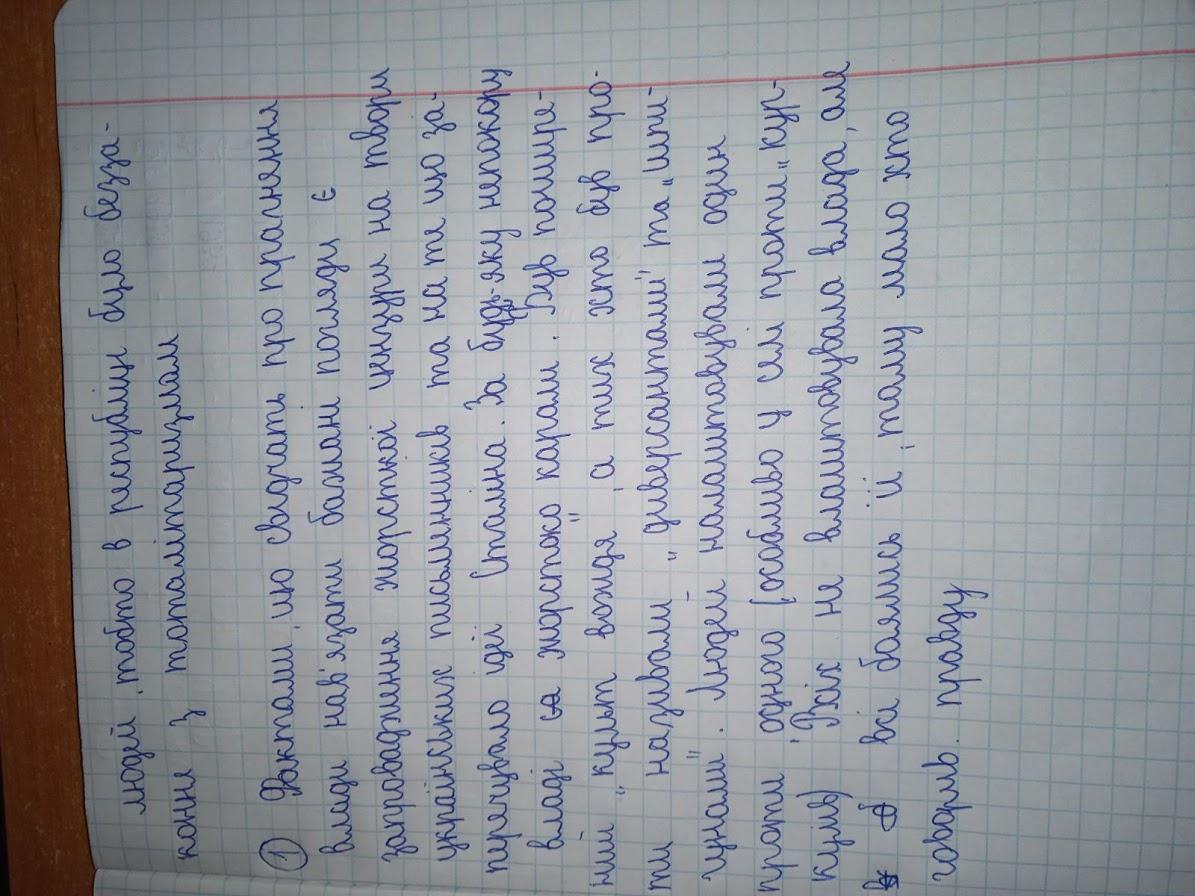 людей, тобто в республіці було безза-
конне з тоталітаризмом
① Фактами, що свідчать про прагнення
влади нав'язати бажані погляди є
запровадження жорсткої цензури на твори
українських письменників та на те що за-
перечувало ідеї Сталіна. За будь-яку непокору
владі жорстоко карали. Був пошире-
ний „культ вождя", а тих хто був про-
ти називали „диверсантами" та „шпи-
гунами". Людей налаштовували один
проти одного (особливо у селі проти „кур-
кулів) Всіх не влаштовувала влада, але
всі боялись її, тому мало хто
говорив правду